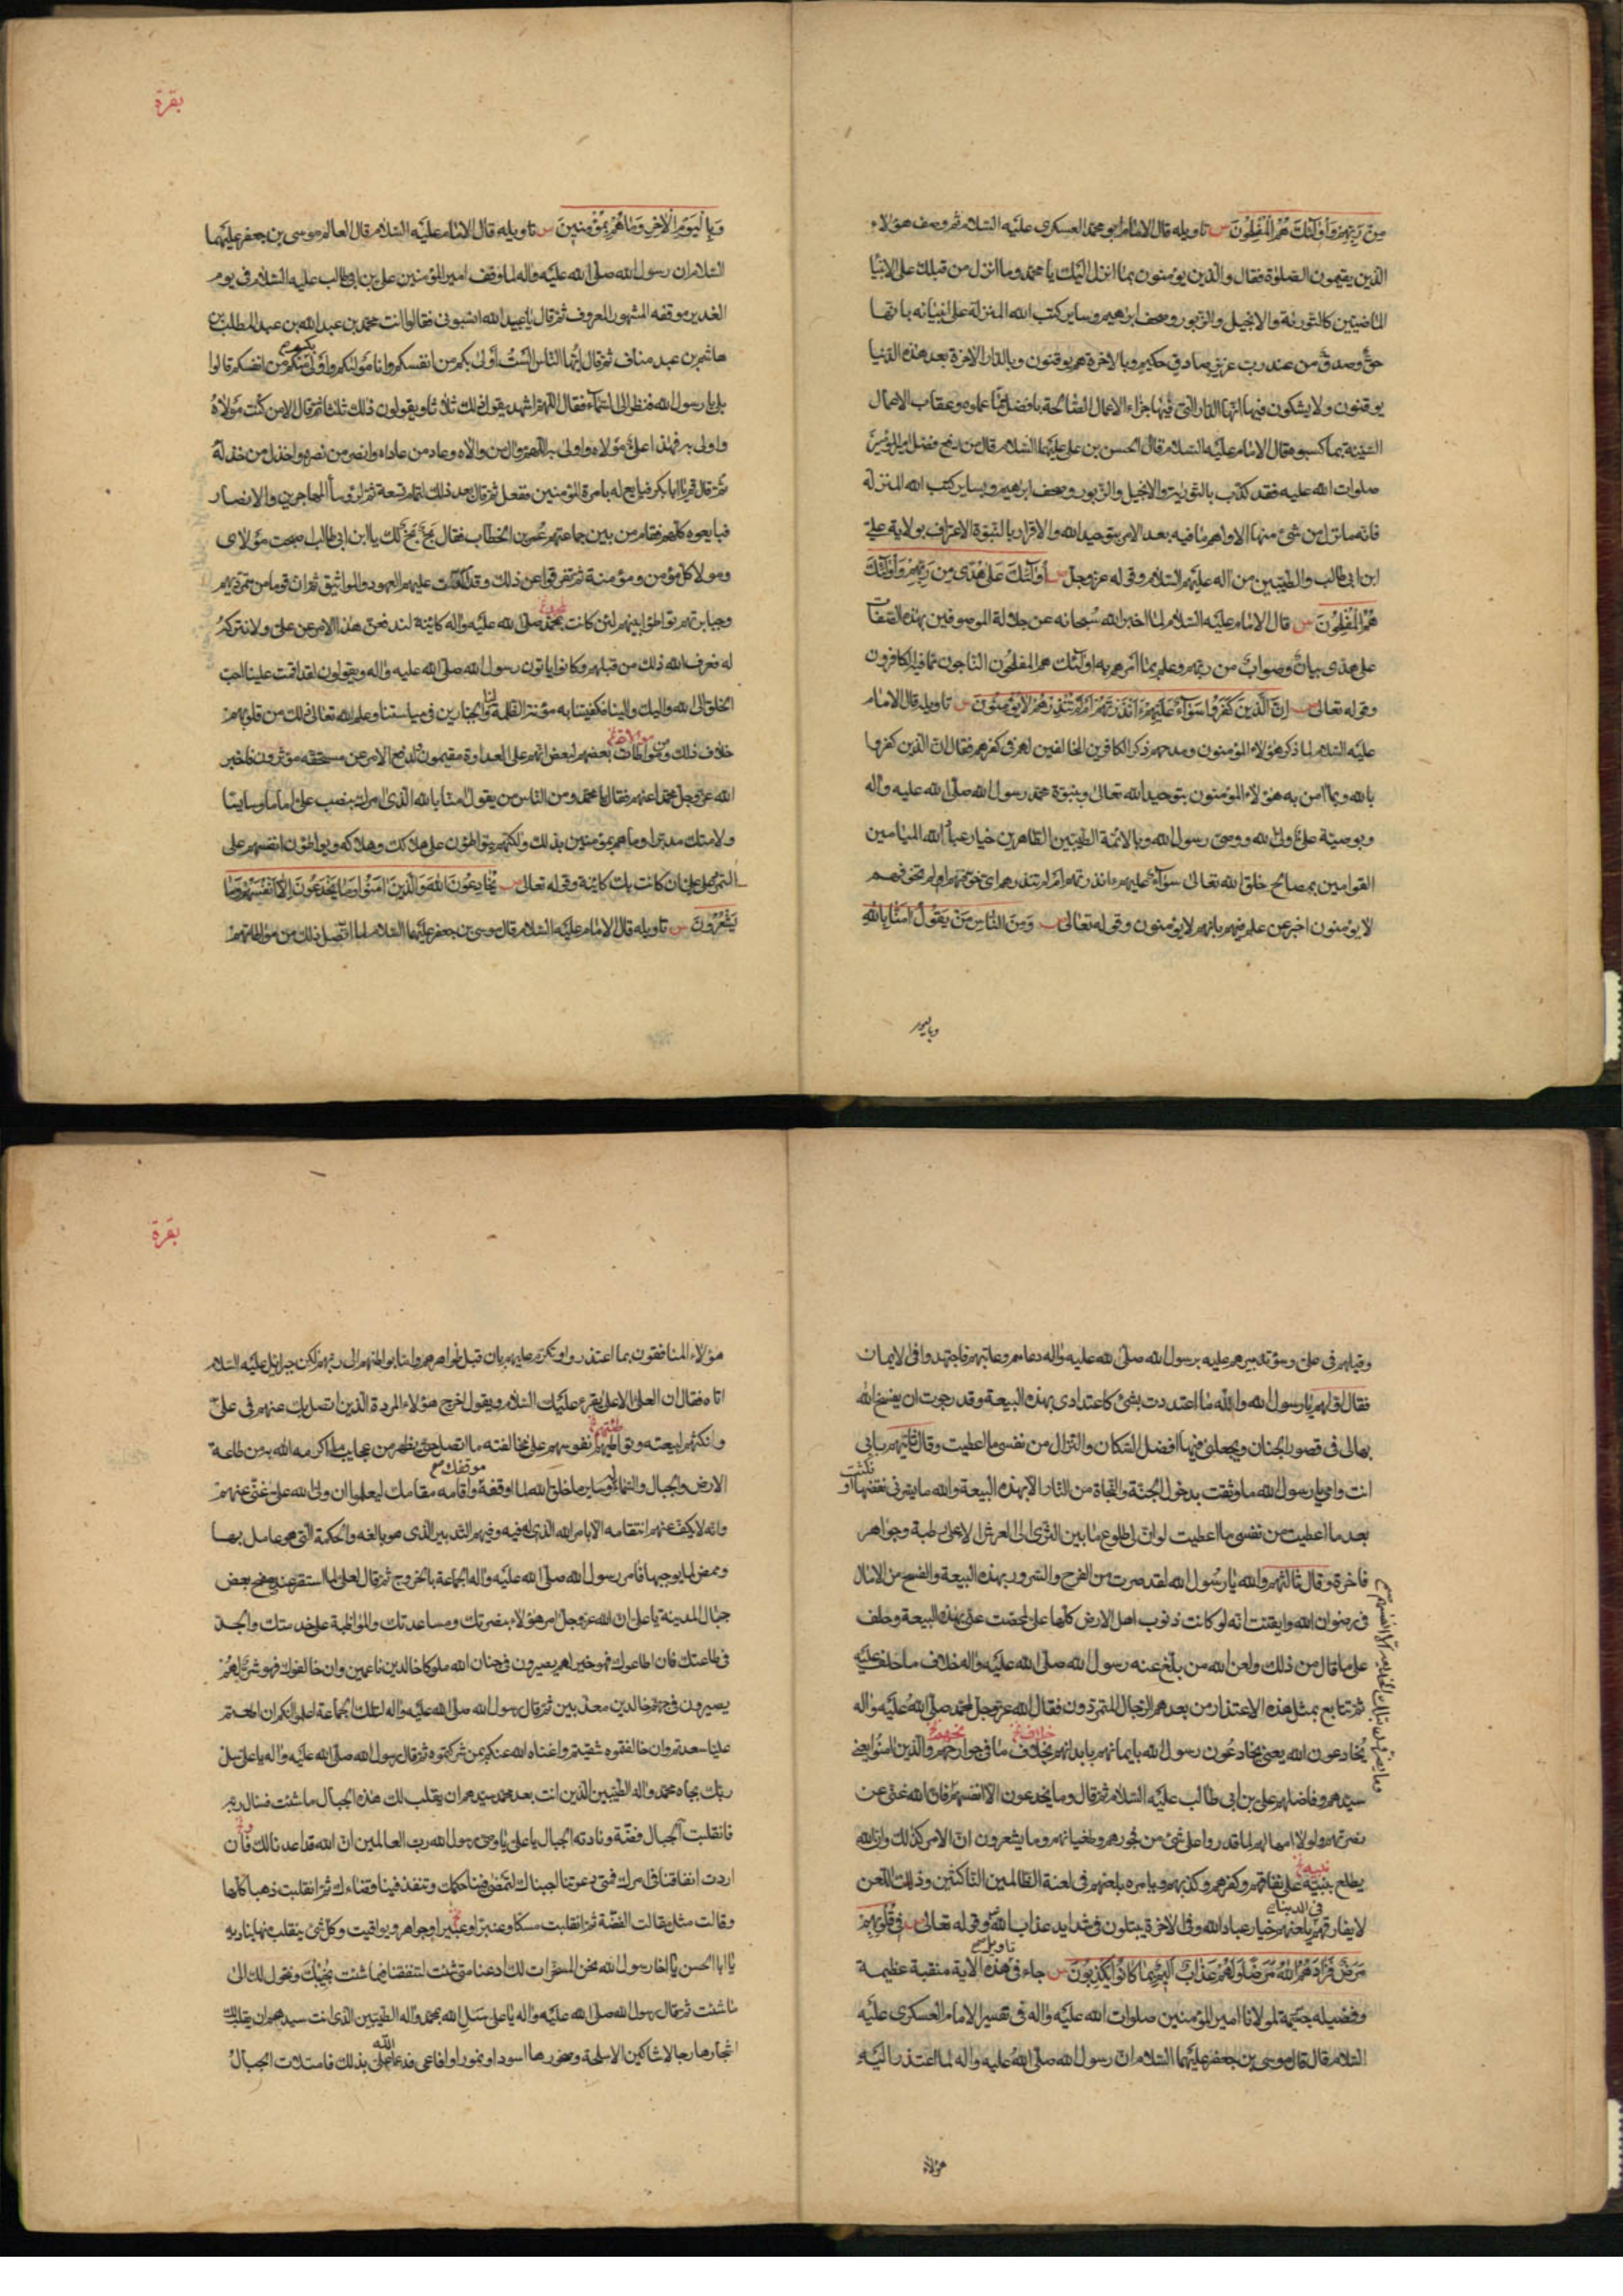 من ربهم واولئك هم المفلحون س تاويله قال الامام ابو محمد العسكرى عليه السلام ثم وصف هؤلاء
الذين يقيمون الصلوة فقال والذين يؤمنون بما انزل اليك يا محمد وما انزل من قبلك على الانبيا
الماضيين كالتورية والانجيل والزبور وصحف ابرهيم وساير كتب الله المنزلة على انبيائه بانها
حق وصدق من عند رب عزيز صادق حكيم وبالاخرة هم يوقنون وبالدار الاخرة بعد هذه الدنيا
يوقنون ولا يشكون فيها انها الدار التى فيها جزاء الاعمال الصالحة بافضل مما عملوه وعقاب الاعمال
السيئة بما كسبوه وقال الامام عليه السلام قال الحسن بن على عليهما السلام قال من دفع فضل امير المؤمنين
صلوات الله عليه فقد كذب بالتورية والانجيل والزبور وصحف ابرهيم وبساير كتب الله المنزلة
فانه ما نزل من شئ منها الا واهم ما فيه بعد الامر بتوحيد الله والاقرار بالنبوة الاعتراف بولاية على
ابن ابى طالب والطيبين من اله عليهم السلام وقوله عز وجل س اولئك على هدى من ربهم واولئك
هم المفلحون س قال الامام عليه السلام لما اخبر الله سبحانه عن جلالة الموصوفين بهذه الصفات
على هدى بيان وصواب من ربهم وعلم بما امرهم به اولئك هم المفلحون الناجون مما فيه الكافرون
وقوله تعالى س ان الذين كفروا سواء عليهم ءانذرتهم ام لم تنذرهم لا يؤمنون س تاويله قال الامام
عليه السلام لما ذكر هؤلاء المؤمنون ومدحهم ذكر الكافرين المخالفين لهم فى كفرهم فقال ان الذين كفروا
بالله وبما امن به هؤلاء المؤمنون بتوحيد الله تعالى وبنبوة محمد رسول الله صلى الله عليه واله
وبوصية على ولى الله ووصى رسول الله وبالائمة الطيبين الطاهرين خيار عباد الله الميامين
القوامين بمصالح خلق الله تعالى سواء عليهم ءانذرتهم ام لم تنذرهم اى خوفتهم ام لم تخوفهم
لا يؤمنون اخبر عن علم فيهم بانهم لا يؤمنون وقوله تعالى س ومن الناس من يقول امنا بالله
وباليوم
بقرة
وباليوم الاخر وما هم بمؤمنين س تاويله قال الامام عليه السلام قال العالم موسى بن جعفر عليهما
السلام ان رسول الله صلى الله عليه واله لما وقف امير المؤمنين على بن ابى طالب عليه السلام فى يوم
الغدير موقفه المشهور المعروف ثم قال يا عبيد الله انسبونى فقالوا انت محمد بن عبد الله بن عبد المطلب بن
هاشم بن عبد مناف ثم قال ايها الناس الست اولى بكم من انفسكم وانا مولاكم واولى بكم من انفسكم قالوا
بلى يا رسول الله فنظر الى السماء فقال اللهم اشهد يقول ذلك ثلاثا ويقولون ذلك ثلثا ثم قال الا من كنت مولاه
واولى به فهذا على مولاه واولى به اللهم وال من والاه وعاد من عاداه وانصر من نصره واخذل من خذله
ثم قال قم يا ابا بكر فبايع له بامرة المؤمنين ففعل ثم قال بعد ذلك لتمام تسعة ثم لرؤسا المهاجرين والانصار
فبايعوه كلهم فقام من بين جماعتهم عمر بن الخطاب فقال بخ بخ لك يا ابن ابى طالب اصبحت مولاى
ومولا كل مؤمن ومؤمنة ثم تفرقوا عن ذلك وقد اكدت عليهم العهود والمواثيق ثم ان قوما من متمرديهم
وجبابرتهم تواطئوا بينهم لئن كانت بمحمد صلى الله عليه واله كاينة لندفعن هذا الامر عن على ولا نتركه
له فعرف الله ذلك من قبلهم وكانوا ياتون رسول الله صلى الله عليه واله ويقولون لقد اقمت علينا احب
الخلق الى الله واليك والينا فكفيتنا به مؤنة الظلمة لنا والجبارين فى سياستنا وعلم الله تعالى ذلك من قلوبهم
خلاف ذلك ومن مواطات بعضهم لبعض انهم على العداوة مقيمون ولدفع الامر عن مستحقه مؤثرون فاخبر
الله عز وجل محمدا عنهم فقال يا محمد ومن الناس من يقول امنا بالله الذى امرك بنصب على اماما وسايسا
ولامتك مدبرا وما هم بمؤمنين بذلك ولكنهم يتواطؤن على هلاكك وهلاكه ويواطؤن انفسهم على
التمرد على على ان كانت بك كاينة وقوله تعالى س يخادعون الله والذين امنوا وما يخدعون الا انفسهم وما
يشعرون س تاويله قال الامام عليه السلام قال موسى بن جعفر عليهما السلام لما اتصل ذلك من مواطاتهم
وقيلهم فى على وسوء تدبيرهم عليه برسول الله صلى الله عليه واله دعاهم وعاتبهم فاجتهدوا فى الايمان
فقال اولهم يا رسول الله والله ما اعتددت بشئ كاعتدادى بهذه البيعة وقد رجوت ان يفسح الله
بها لى فى قصور الجنان ويجعلنى فيها افضل السكان والنزال من نفسى ما اعطيت وقال ثانيهم بابى
انت وامى يا رسول الله ما وثقت بدخول الجنة والنجاة من النار الا بهذه البيعة والله ما يسرنى نقضها او نكثت
بعد ما اعطيت من نفسى ما اعطيت لو ان لى طلوع ما بين الثرى الى العرش لالئ رطبة وجواهر
فاخرة وقال ثالثهم والله يا رسول الله لقد صرت من الفرح والسرور بهذه البيعة والفسح من الامال
فى رضوان الله وايقنت انه لو كانت ذنوب اهل الارض كلها على لمحصت عنى بهذه البيعة وحلف
على ما قال من ذلك ولعن الله من بلغ عنه رسول الله صلى الله عليه واله خلاف ما حلف عليه
ثم تتابع بمثل هذه الاعتذار من بعدهم الرجال المتمردون فقال الله عز وجل لمحمد صلى الله عليه واله
يخادعون الله يعنى يخادعون رسول الله بايمانهم بابدانهم بخلاف ما فى جوارحهم والذين امنوا يعنى
سيدهم وفاضلهم على بن ابى طالب عليه السلام ثم قال وما يخدعون الا انفسهم فان الله غنى عن
نصرتهم ولولا امهالهم لما قدروا على شئ من فجورهم وطغيانهم وما يشعرون ان الامر كذلك وان الله
يطلع نبيه على نفاقهم وكفرهم وكذبهم ويامره بلعنهم فى لعنة الظالمين الناكثين وذلك اللعن
لا يفارقهم فى الدنيا يلعنهم خيار عباد الله وفى الاخرة يبتلون فى شدايد عذاب الله وقوله تعالى س فى قلوبهم
مرض فزادهم الله مرضا ولهم عذاب اليم بما كانوا يكذبون س تاويله جاء فى هذه الاية منقبة عظيمة
وفضيلة جسيمة لمولانا امير المؤمنين صلوات الله عليه واله فى تفسير الامام العسكرى عليه
السلام قال قال موسى بن جعفر عليهما السلام ان رسول الله صلى الله عليه واله لما اعتذر اليه
هؤلاء
بقرة
هؤلاء المنافقون بما اعتذروا وتكرم عليهم بان قبل ظواهرهم واما بواطنهم الى ربهم لكن جبرائيل عليه السلام
اتاه فقال ان العلى الاعلى يقرء عليك السلام ويقول اخرج هؤلاء المردة الذين اتصل بك عنهم فى على
ونكثهم لبيعته وتوطينهم نفوسهم على مخالفته ما اتصل حتى يظهر من عجايب ما اكرمه الله به من طاعة
الارض والجبال والسماء وساير ما خلق الله لما اوقفه موقفك واقامه مقامك ليعلموا ان ولى الله على غنى عنهم
وانه لا يكف عنهم انتقامه الا بامر الله الذى له فيه وفيهم التدبير الذى هو بالغه والحكمة التى هو عامل بها
وممض لما يوجبها فامر رسول الله صلى الله عليه واله الجماعة بالخروج ثم قال لعلى لما استقر عند سفح بعض
جبال المدينة يا على ان الله عز وجل امر هؤلاء بنصرتك ومساعدتك والمواظبة على خدمتك والجد
فى طاعتك فان اطاعوك فهو خير لهم يصيرون فى جنان الله ملوكا خالدين ناعمين وان خالفوك فهو شر لهم
يصيرون فى جهنم خالدين معذبين ثم قال رسول الله صلى الله عليه واله لتلك الجماعة اعلموا انكم ان اطعتم
عليا سعدتم وان خالفتموه شقيتم واغناه الله عنكم بمن سيريكموه ثم قال رسول الله صلى الله عليه واله يا على سل
ربك بجاه محمد واله الطيبين الذين انت بعد محمد سيدهم ان يقلب لك هذه الجبال ما شئت فسال ربه
فانقلبت الجبال فضة ونادته الجبال يا على يا وصى رسول الله رب العالمين ان الله قد اعدنا لك فان
اردت انفاقنا فى امرك فمتى دعوتنا اجبناك لتمضى فينا حكمك وتنفذ فينا قضاءك ثم انقلبت ذهبا كلها
وقالت مثل مقالت الفضة ثم انقلبت مسكا وعنبرا وعبيرا وجواهر ويواقيت وكل شئ ينقلب منها يناديه
يا ابا الحسن يا اخا رسول الله نحن المسخرات لك ادعنا متى شئت لتنفقنا فيما شئت نجبك ونتحول لك الى
ما شئت ثم قال رسول الله صلى الله عليه واله يا على سل الله بمحمد واله الطيبين الذى انت سيدهم ان يقلب لك
اشجارها رجالا شاكين الاسلحة وصخورها اسودا ونمورا وافاعى فدعا الله على بذلك فامتلات الجبال